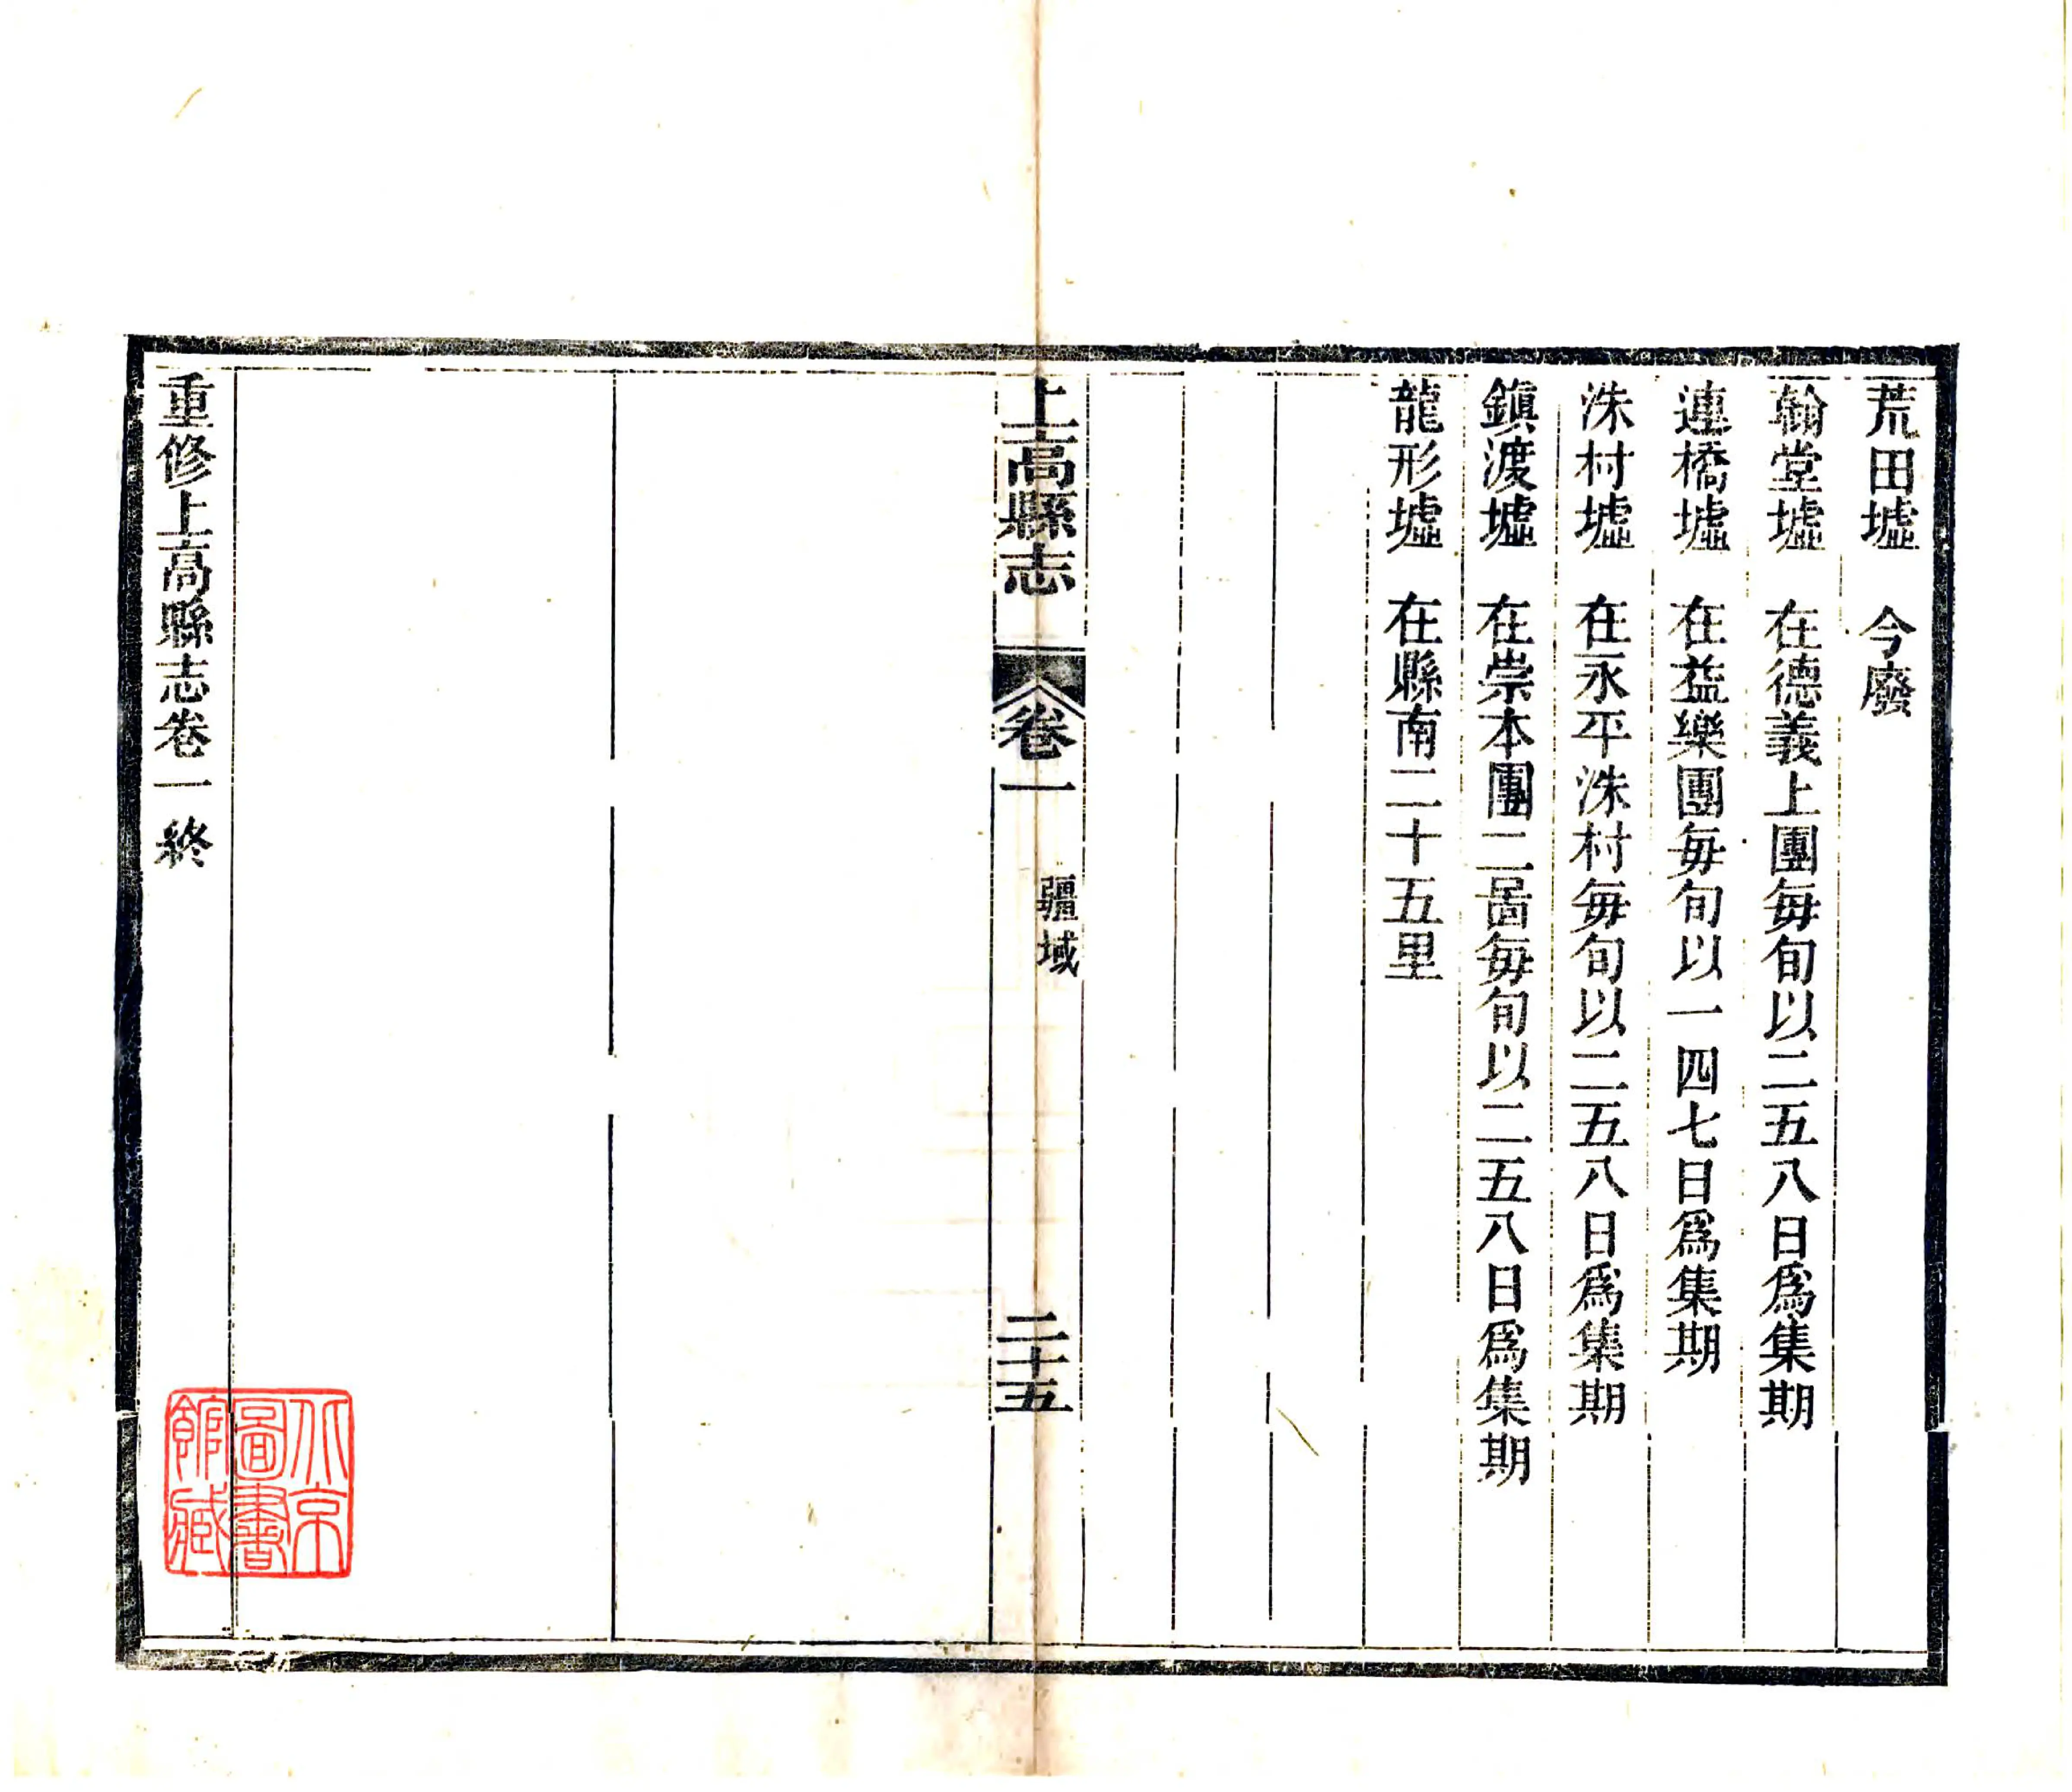 荒田墟 今廢
翰堂墟 在德義上團每旬以二五八日爲集期
連橋墟 在益樂團每旬以一四七日爲集期
洙村墟 在永平洙村每旬以二五八日爲集期
鎮渡墟 在崇本團二啚每旬以二五八日爲集期
龍形墟 在縣南二十五里
上高縣志 卷一 疆域 二十五
重修上高縣志卷一終
北京
圖書
館藏